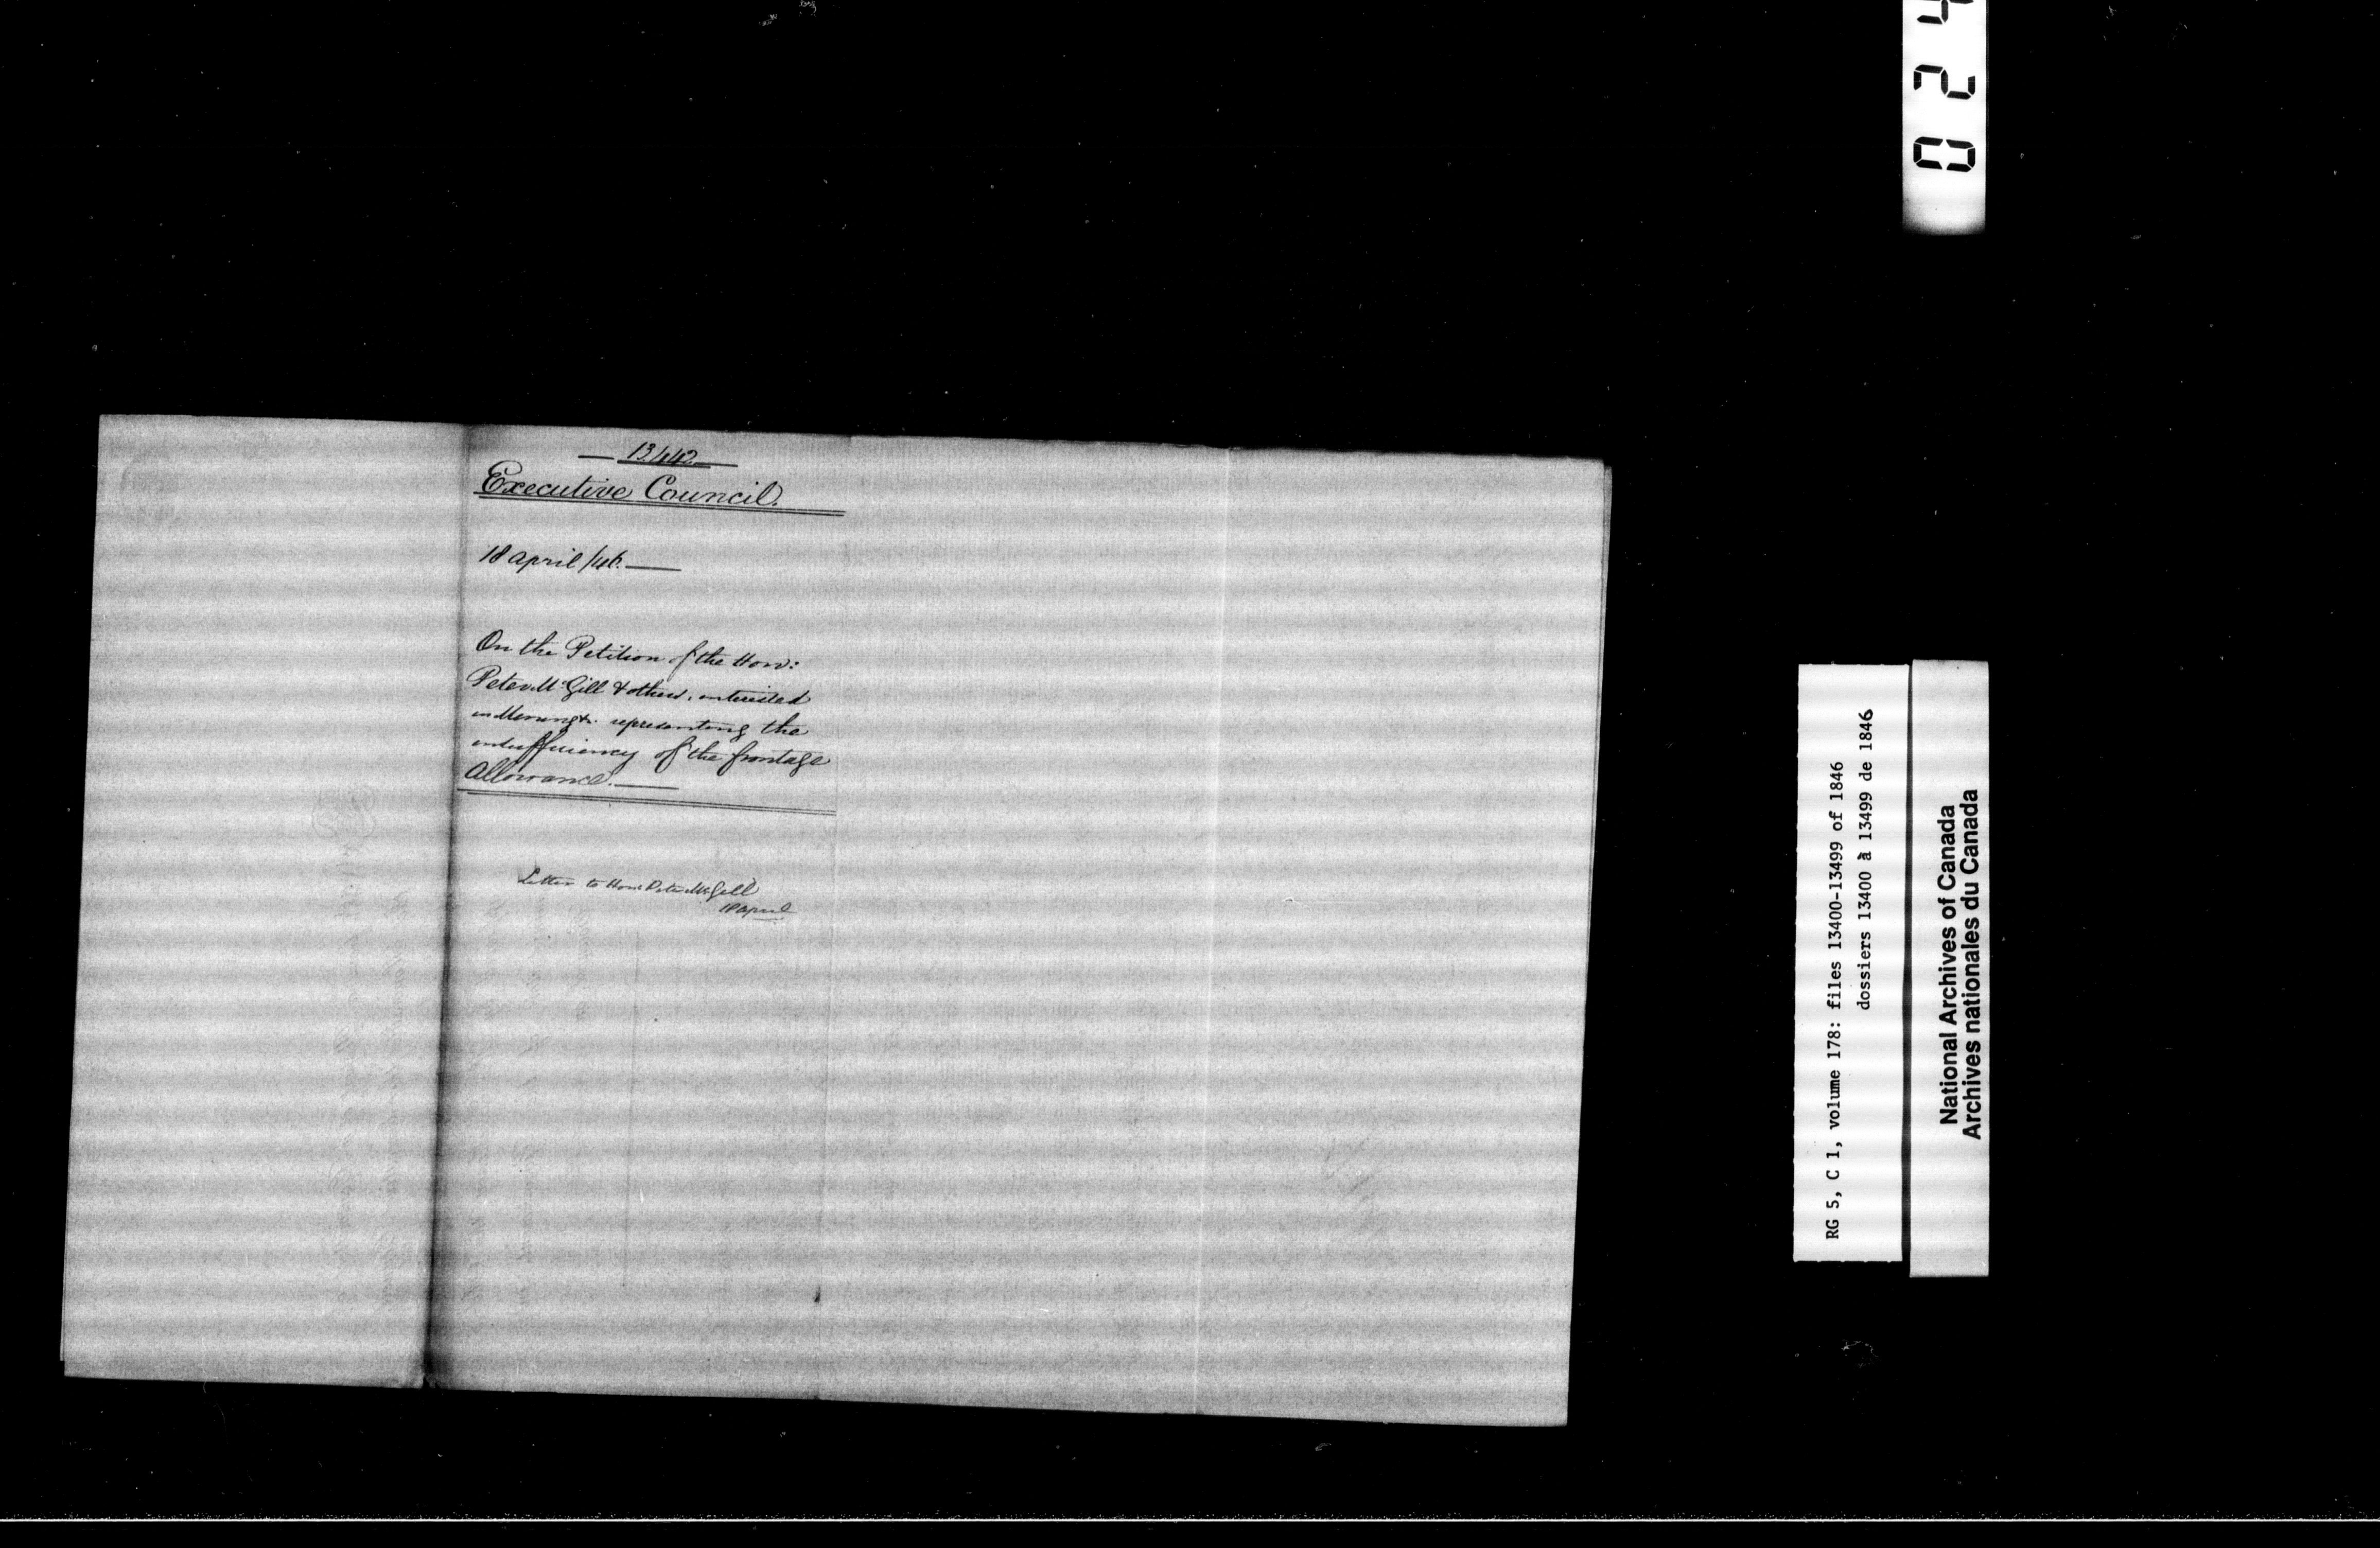 13.442
Executive Council.
18 April /46.
On the Petition of the Hon:
Peter McGill & others, interested
in Mining &c. representing the
insufficiency of the frontage
Allowance.
Letter to Hon: Peter McGill
18 April
0 2 4
RG 5, C 1, volume 178: files 13400-13499 of 1846
dossiers 13400 à 13499 de 1846
National Archives of Canada
Archives nationales du Canada